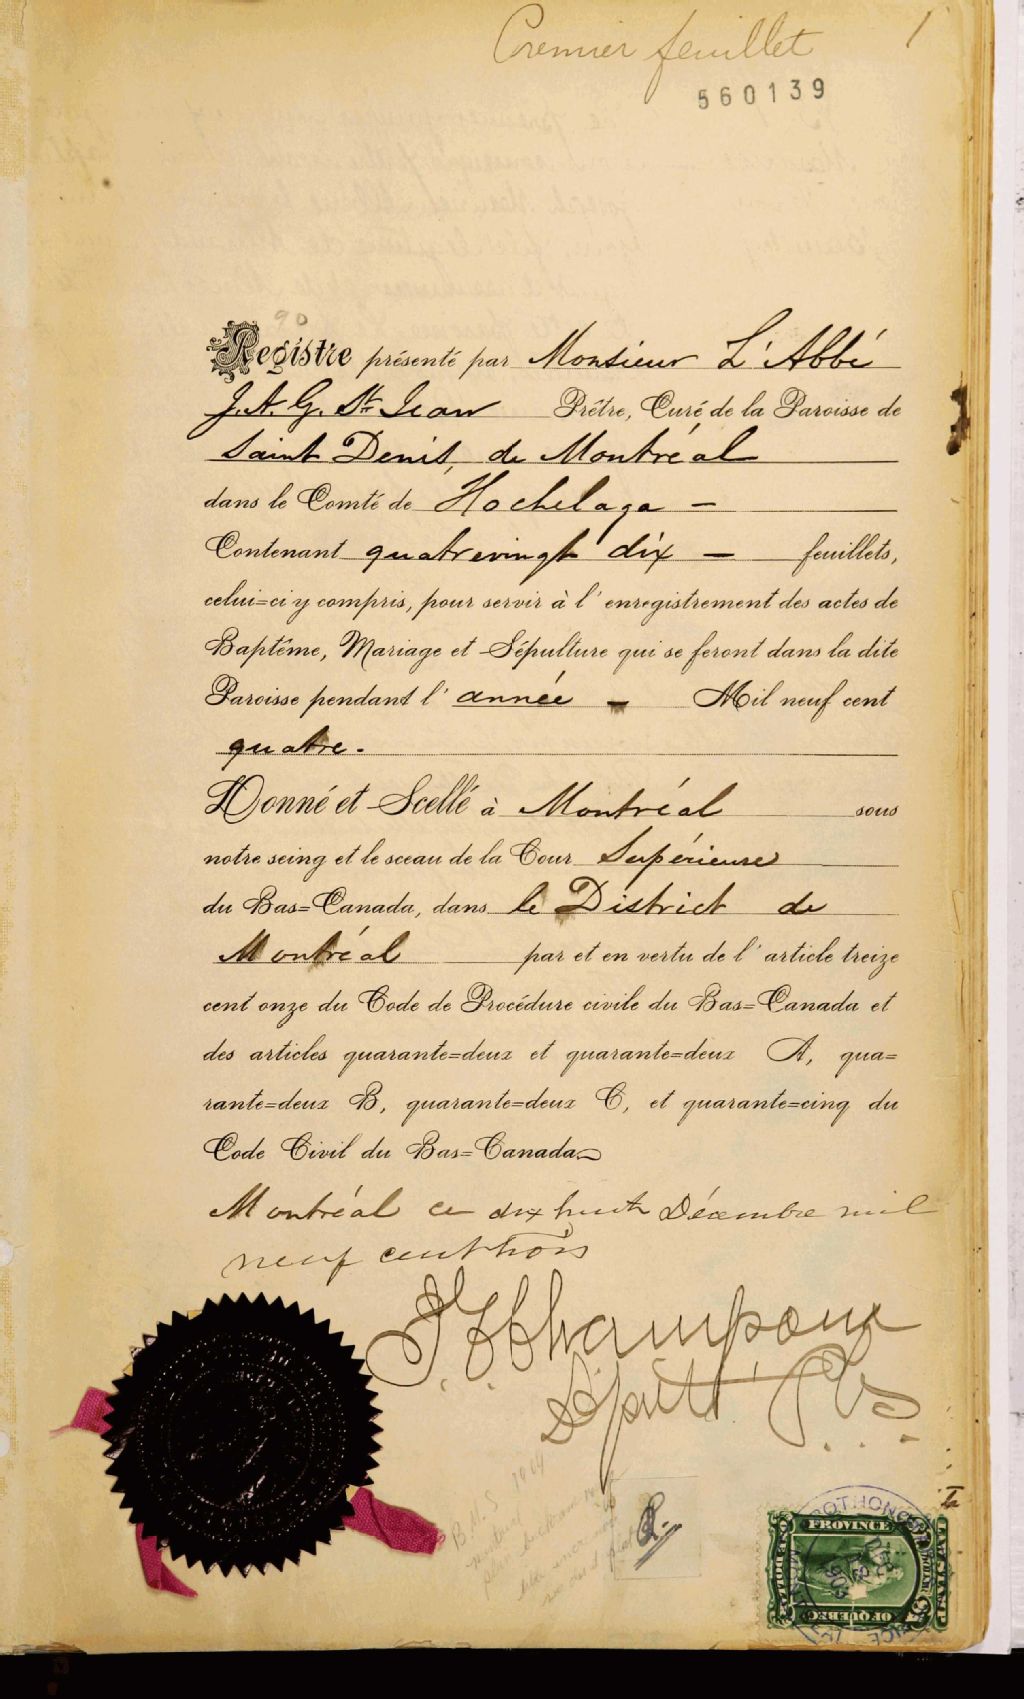 Premier feuillet 1
560139
90
Registre présenté par Monsieur L'Abbé
J. A. G. St Jean Prêtre, Curé de la Paroisse de
Saint Denis, de Montréal
dans le Comté de Hochelaga —
Contenant quatrevingt dix — feuillets,
celui=ci y compris, pour servir à l'enregistrement des actes de
Baptême, Mariage et Sépulture qui se feront dans la dite
Paroisse pendant l'année — Mil neuf cent
quatre.
Donné et Scellé à Montréal sous
notre seing et le sceau de la Cour Supérieure
du Bas=Canada, dans le District de
Montréal par et en vertu de l'article treize
cent onze du Code de Procédure civile du Bas=Canada et
des articles quarante=deux et quarante=deux A, qua=
rante=deux B, quarante=deux C, et quarante=cinq du
Code Civil du Bas=Canada
Montréal ce dix huit Décembre mil
neuf cent trois
Champoux
Député P.C.S.
B. M. S 1904
PROVINCE
OF QUEBEC
LAW STAMP